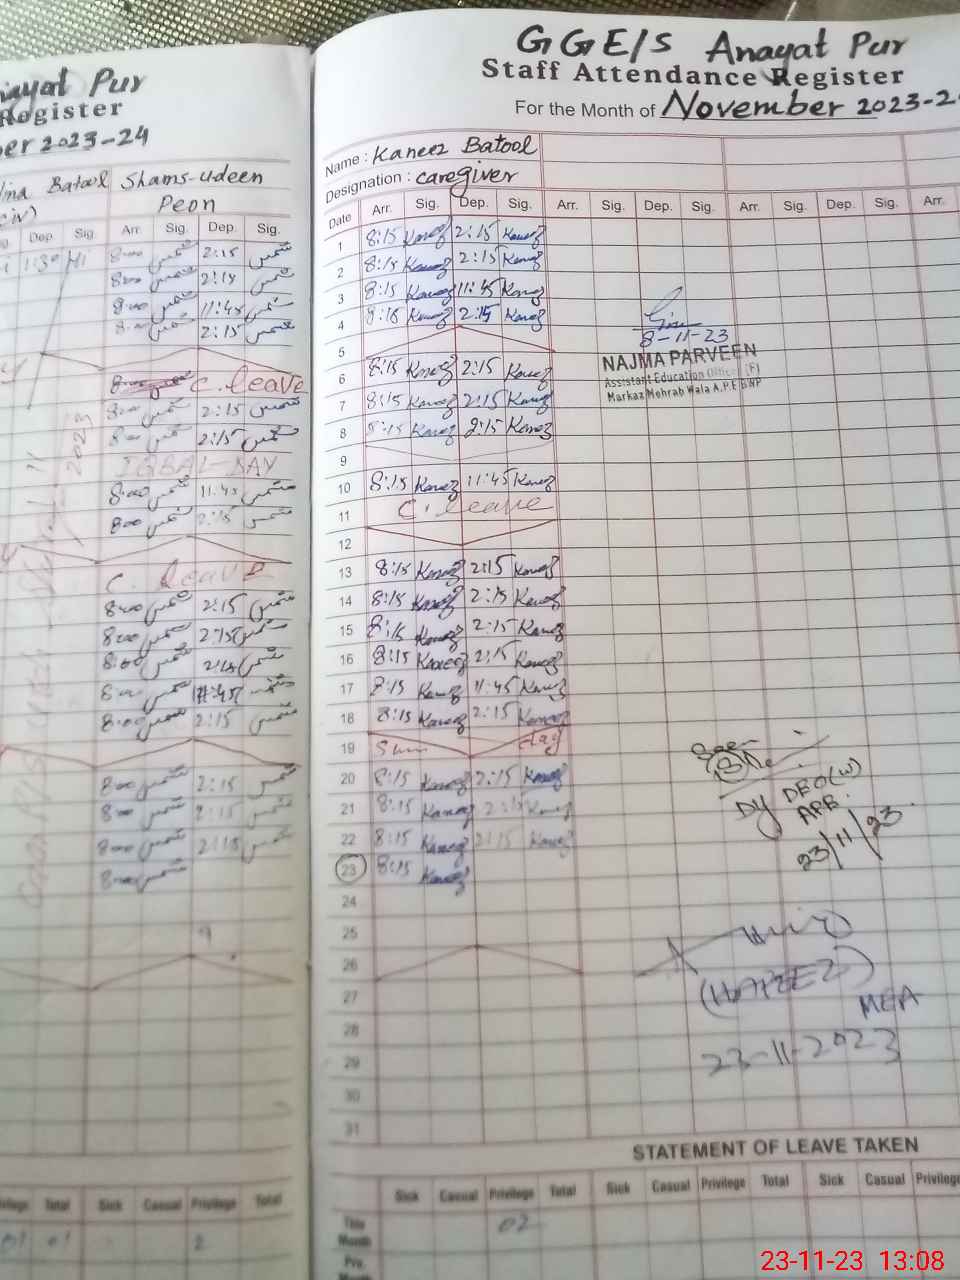 ayat Pur
Register
ber 2023-24
Batool Shams-udeen
Peon
Dep. Sig. Arr. Sig. Dep. Sig.
1:30 8:00 شمس 2:15 شمس
8:00 شمس 2:15 شمس
8:00 شمس 11:45 شمس
8:00 شمس 2:15 شمس
C. leave
8:00 شمس 2:15 شمس
8:00 شمس 2:15 شمس
IQBAL-DAY
8:00 شمس 11:45 شمس
8:00 شمس 2:15 شمس
C. leave
8:00 شمس 2:15 شمس
8:00 شمس 2:15 شمس
8:00 شمس 2:15 شمس
8:00 شمس 11:45 شمس
8:00 شمس 2:15 شمس
8:00 شمس 2:15 شمس
8:00 شمس 2:15 شمس
8:00 شمس 2:15 شمس
8:00 شمس
Total Sick Casual Privilege Total
01 01 2
GGE/S Anayat Pur
Staff Attendance Register
For the Month of November 2023-2
Name : Kaneez Batool
Designation : caregiver
Date Arr. Sig. Dep. Sig. Arr. Sig. Dep. Sig. Arr. Sig. Dep. Sig. Arr.
1 8:15 Kaneez 2:15 Kaneez
2 8:15 Kaneez 2:15 Kaneez
3 8:15 Kaneez 11:45 Kaneez
4 8:15 Kaneez 2:15 Kaneez
5
6 8:15 Kaneez 2:15 Kaneez
7 8:15 Kaneez 2:15 Kaneez
8 8:15 Kaneez 2:15 Kaneez
9
10 8:15 Kaneez 11:45 Kaneez
11 C. leave
12
13 8:15 Kaneez 2:15 Kaneez
14 8:15 Kaneez 2:15 Kaneez
15 8:15 Kaneez 2:15 Kaneez
16 8:15 Kaneez 2:15 Kaneez
17 8:15 Kaneez 11:45 Kaneez
18 8:15 Kaneez 2:15 Kaneez
19 Sun day
20 8:15 Kaneez 2:15 Kaneez
21 8:15 Kaneez 2:15 Kaneez
22 8:15 Kaneez 2:15 Kaneez
23 8:15 Kaneez
24
25
26
27
28
29
30
31
8-11-23
NAJMA PARVEEN
Assistant Education Officer (F)
Markaz Mehrab Wala A.P.E BWP
Seen
DY DEO(W)
APE.
23/11/23.
(HAFEEZ)
MEA
23-11-2023
STATEMENT OF LEAVE TAKEN
Sick Casual Privilege Total Sick Casual Privilege Total Sick Casual Privilege
This Month 02
Pre. Month
23-11-23 13:08